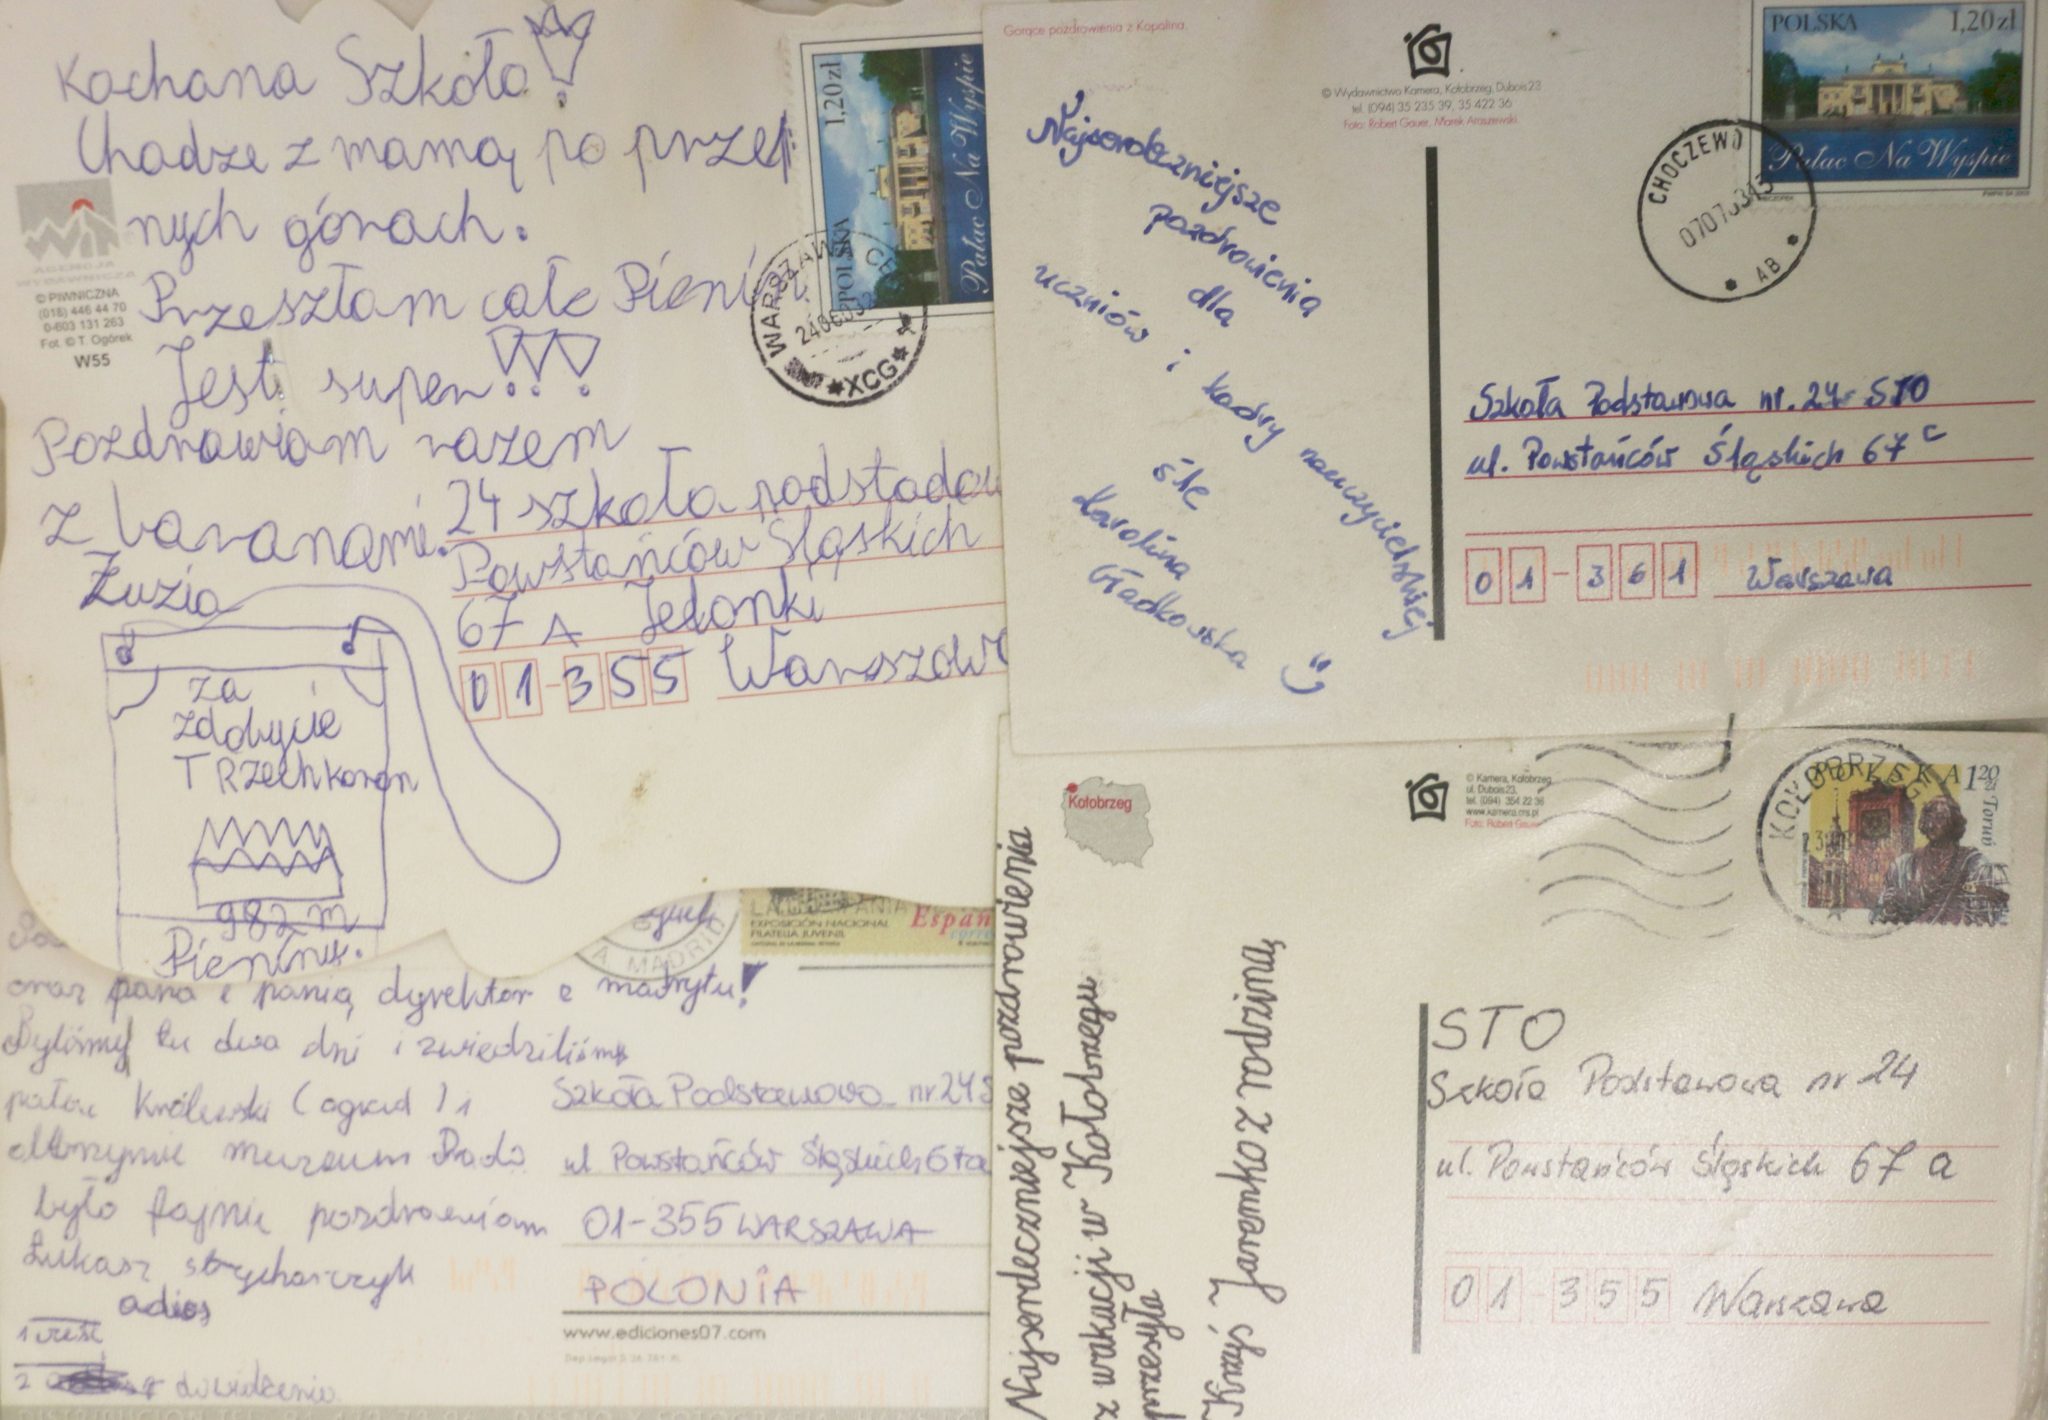 Kochana Szkoło!
Chadze z mamą po przep
nych górach.
Przeszłam całe Pienin
Jest super!!!
Pozdrawiam razem
z baranami.
Zuzia
AGENCJA
WYDAWNICZA
© PIWNICZNA
(018) 446 44 70
0-603 131 263
Fot. © T. Ogórek
W55
1,20zł
POLSKA
Pałac Na Wyspie
WARSZAWA
XCG
24 szkoła podstadow
Powstańców Śląskich
67 A Jelonki
01-355 Warszawa
za
zdobycie
TRzech koron
982 m
Pieniny.
Gorące pozdrowienia z Kopalina.
© Wydawnictwo Kamera, Kołobrzeg, Dubois 23
tel. (094) 35 235 39, 35 422 36
Foto: Robert Gauer, Marek Araszewski.
POLSKA 1,20zł
Pałac Na Wyspie
CHOCZEWO
AB
Najserdeczniejsze
pozdrowienia
dla
uczniów i kadry nauczycielskiej
śle
Karolina
Gładkowska
Szkoła Podstawowa nr. 24 STO
ul. Powstańców Śląskich 67c
01-361 Warszawa
EXPOSICIÓN NACIONAL
FILATELIA JUVENIL
Españ
correo
MADRID
oraz pana i panią dyrektor z madrytu!
Byliśmy tu dwa dni i zwiedziliśmy
pałac Królewski (ogrud) i
olbrzymie muzeum Prado
było fajnie pozdrawiam
Łukasz strycharczyk
adios
1 cześć
2 do widzenia
Szkoła Podstawowa nr 24 S
ul Powstańców Śląskich 67a
01-355 WARSZAWA
POLONIA
www.ediciones07.com
Kołobrzeg
© Kamera, Kołobrzeg
ul. Dubois 23,
tel. (094) 354 22 36
www.kamera.ms.pl
Foto: Robert Gauer
KOŁOBRZEG
POLSKA 1,20 zł
Toruń
Najserdeczniejsze pozdrowienia
z wakacji w Kołobrzegu
przesyła
Krzyś Jaremko z rodziną
STO
Szkoła Podstawowa nr 24
ul. Powstańców Śląskich 67 a
01-355 Warszawa